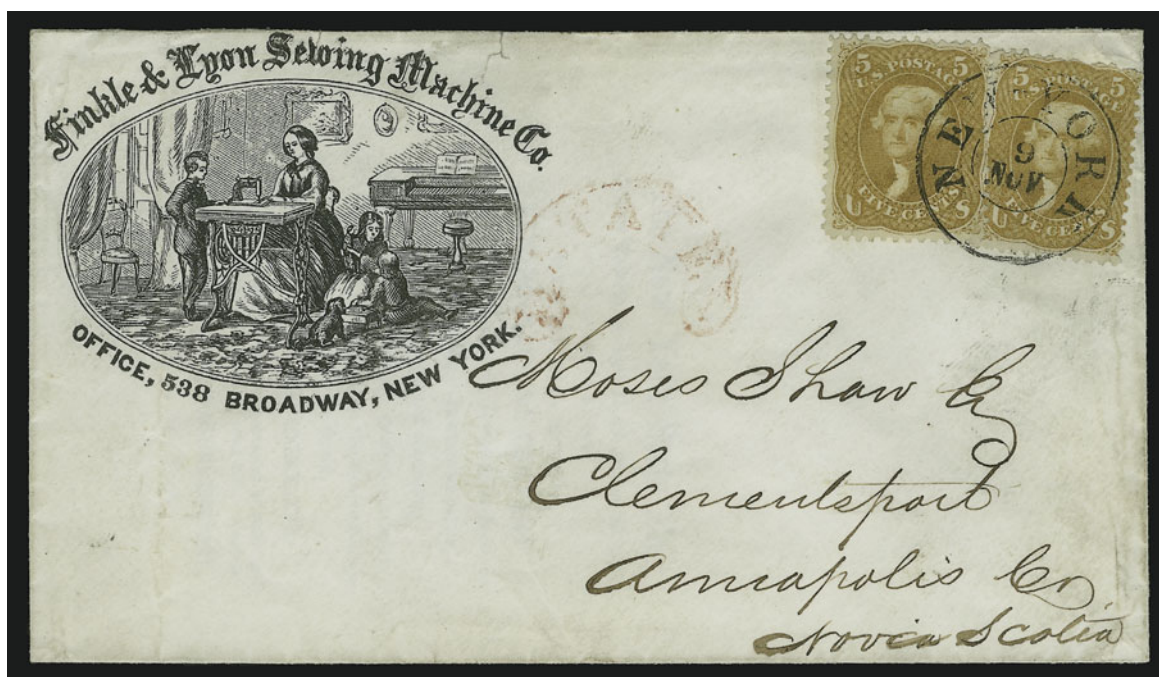 Finkle & Lyon Sewing Machine Co.
OFFICE, 538 BROADWAY, NEW YORK.
5 5
U.S. POSTAGE
U FIVE CENTS S
5 5
U.S. POSTAGE
U FIVE CENTS S
NEW YORK
9
NOV
Moses Shaw
Clementsport
Annapolis Co
Novia Scotia